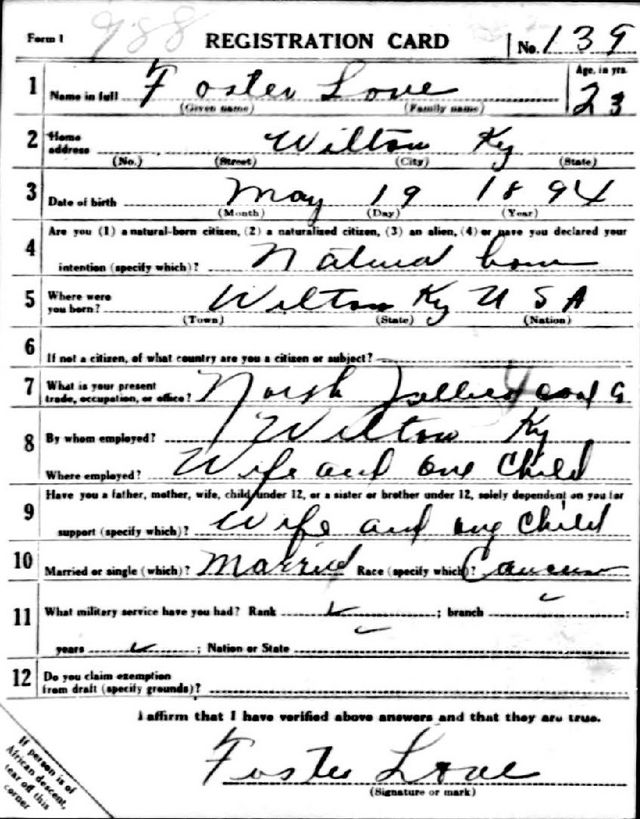 Form 1 988 REGISTRATION CARD No. 139
1 Name in full Foster Love Age, in yrs. 23
(Given name) (Family name)
2 Home address Wilton Ky
(No.) (Street) (City) (State)
3 Date of birth May 19 1894
(Month) (Day) (Year)
4 Are you (1) a natural-born citizen, (2) a naturalized citizen, (3) an alien, (4) or have you declared your
intention (specify which)? Natural born
5 Where were you born? Wilton Ky U S A
(Town) (State) (Nation)
6 If not a citizen, of what country are you a citizen or subject?
7 What is your present trade, occupation, or office? North Jellico Coal
8 By whom employed? Wilton Ky
Where employed? Wife and one Child
9 Have you a father, mother, wife, child under 12, or a sister or brother under 12, solely dependent on you for
support (specify which)? Wife and one Child
10 Married or single (which)? Married Race (specify which)?
11 What military service have you had? Rank ; branch
years ; Nation or State
12 Do you claim exemption
from draft (specify grounds)?
I affirm that I have verified above answers and that they are true.
Foster Love
(Signature or mark)
If person is of
African descent,
tear off this
corner